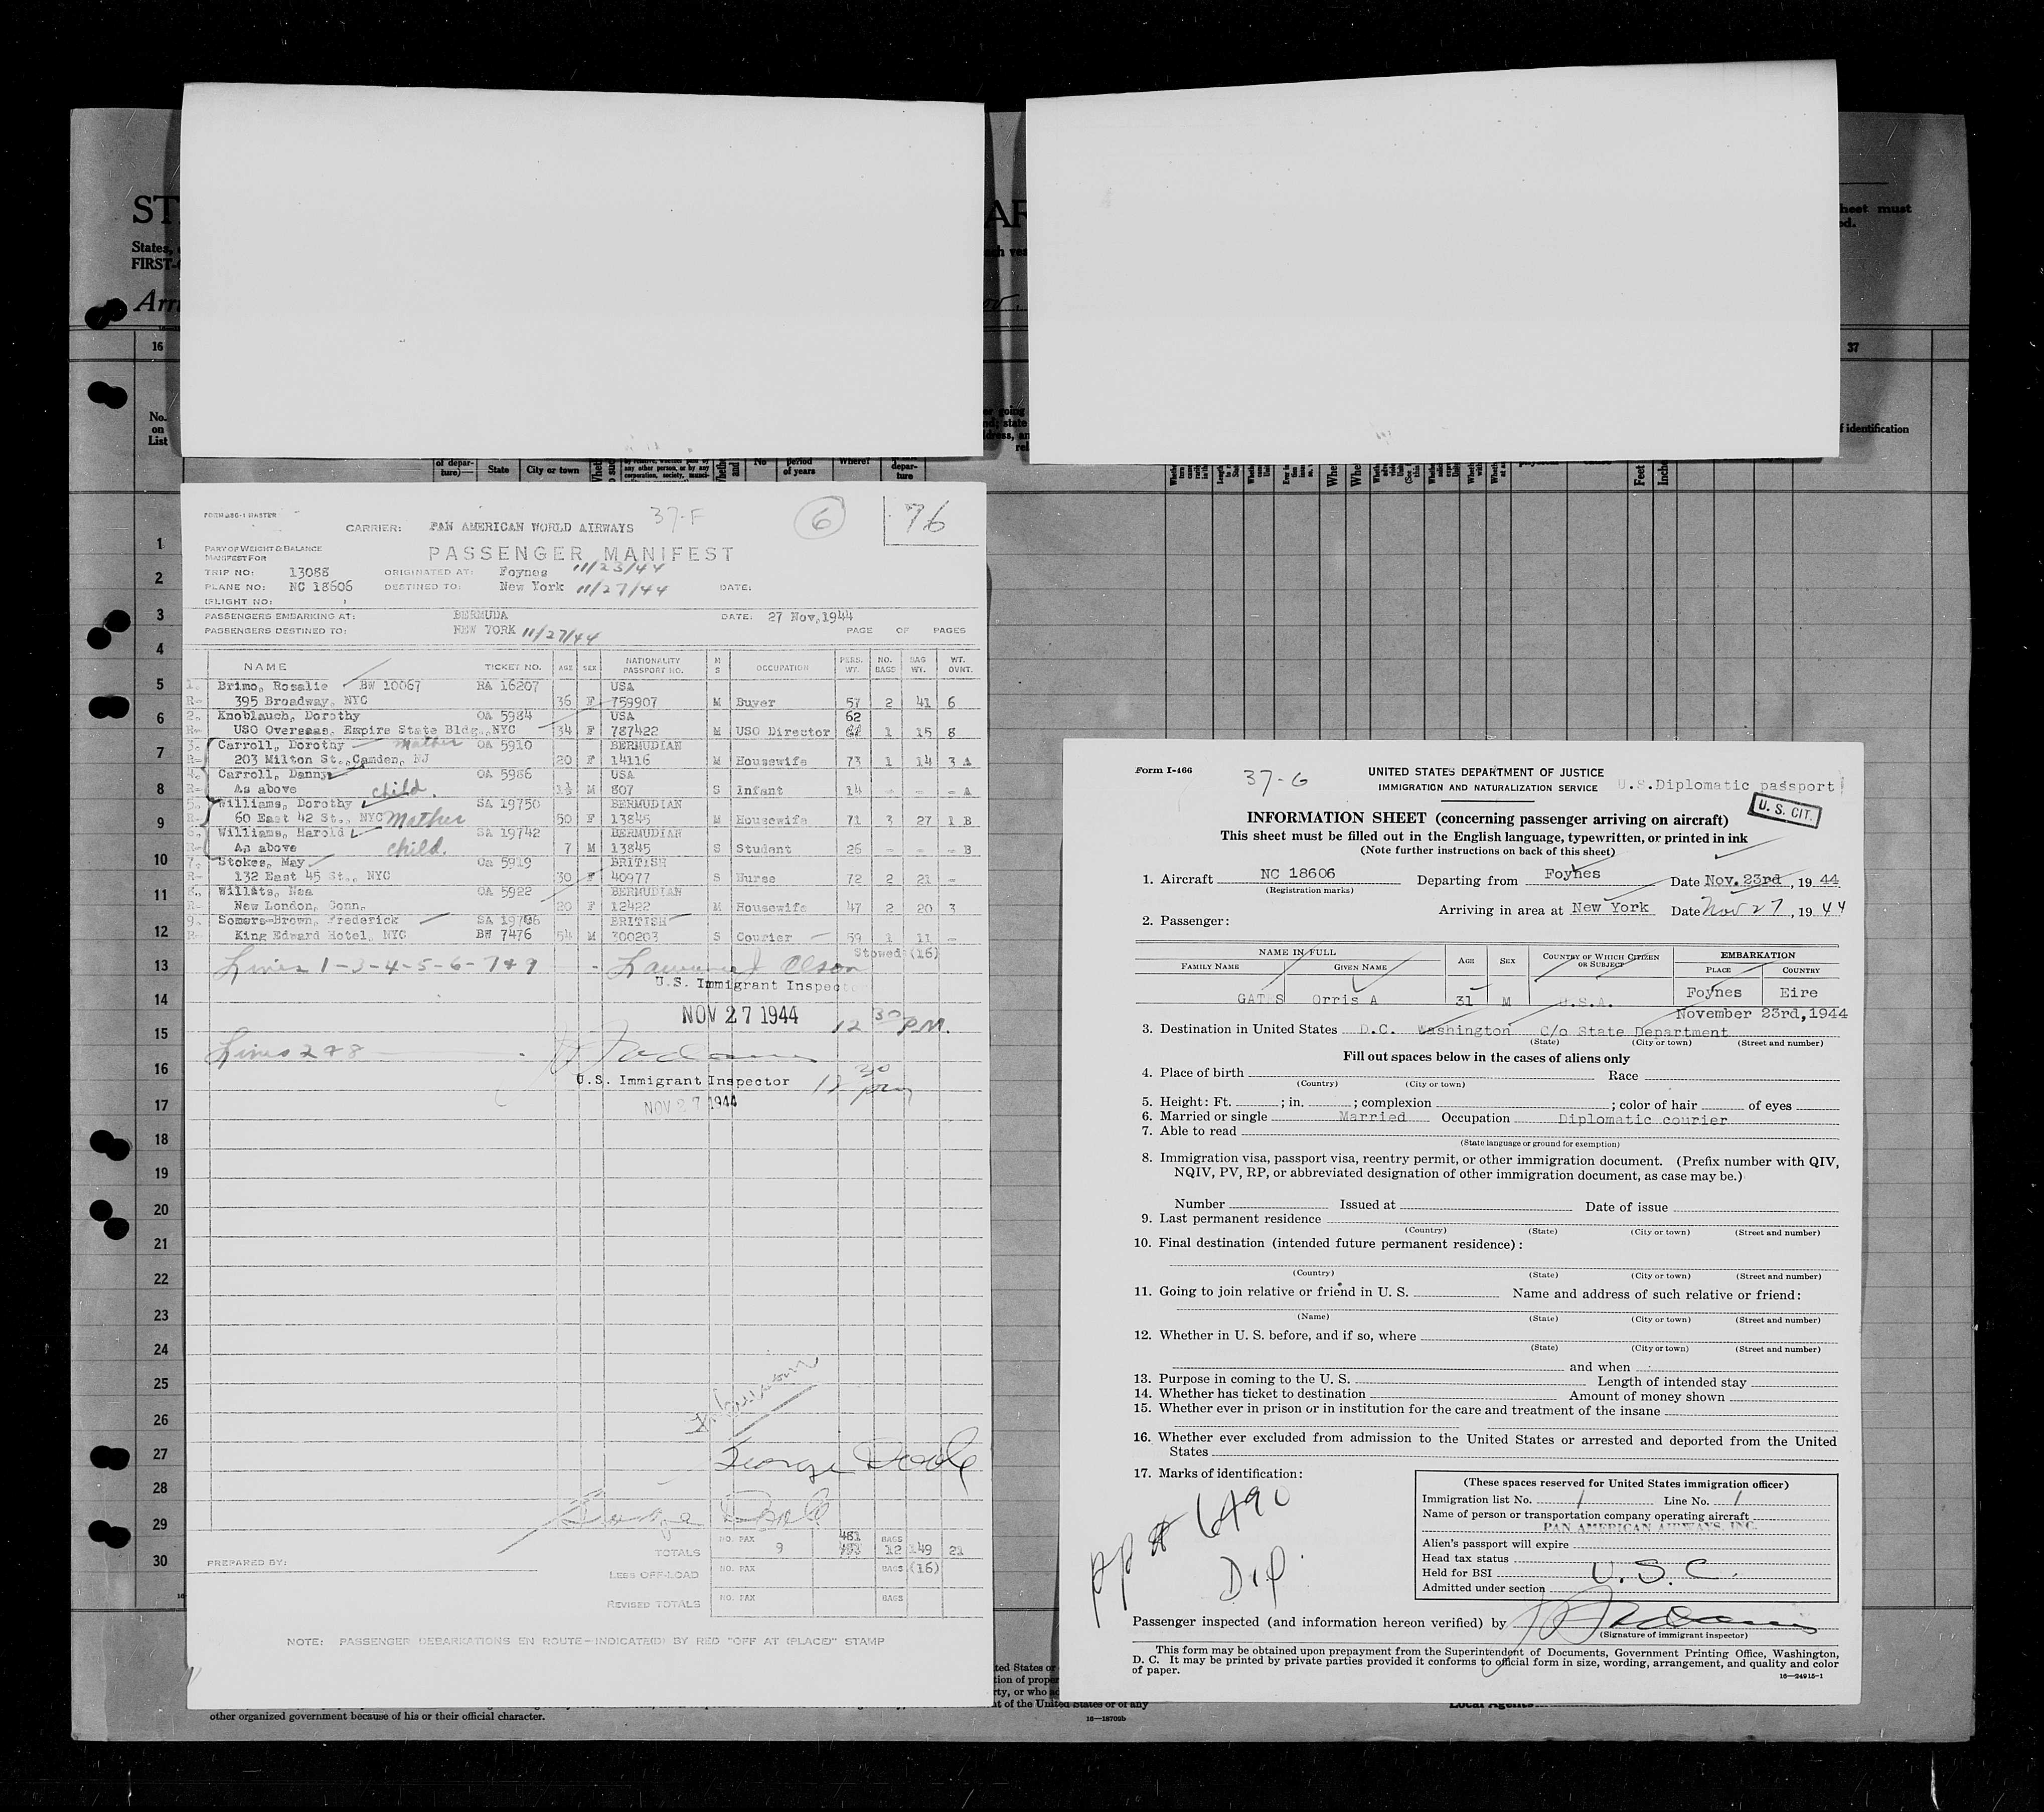 ST
AR
heet must
ed.
States,
FIRST-
ach ves
Arri
ov.
16
37
No.
on
List
er going
nd; state
dress, an
rel
f identification
of depar-
ture)—
State
City or town
by relative, whether paid by
any other person, or by any
corporation, society, munici-
No
period
of years
Where?
depar-
ture
Feet
1
2
3
4
5
6
7
8
9
10
11
12
13
14
15
16
17
18
19
20
21
22
23
24
25
26
27
28
29
30
37-F
6
76
CARRIER: PAN AMERICAN WORLD AIRWAYS
PART OF WEIGHT & BALANCE
MANIFEST FOR
PASSENGER MANIFEST
TRIP NO: 13088 ORIGINATED AT: Foynes 11/23/44
PLANE NO: NC 18606 DESTINED TO: New York 11/27/44 DATE:
(FLIGHT NO:
PASSENGERS EMBARKING AT: BERMUDA DATE: 27 Nov, 1944
PASSENGERS DESTINED TO: NEW YORK 11/27/44 PAGE OF PAGES
NAME TICKET NO. AGE SEX NATIONALITY PASSPORT NO. M S OCCUPATION PERS. WT. NO. BAGS BAG WT. WT. OVNT.
1. Brimo, Rosalie BW 10067 RA 16207 USA
R- 395 Broadway, NYC 36 F 759907 M Buyer 57 2 41 6
2. Knoblauch, Dorothy OA 5984 USA 62
R- USO Overseas, Empire State Bldg., NYC 34 F 787422 M USO Director 1 15 8
3. Carroll, Dorothy Mother OA 5910 BERMUDIAN
R- 203 Milton St., Camden, NJ 20 F 14116 M Housewife 73 1 14 3 A
4. Carroll, Danny OA 5986 USA
R- As above child. 1½ M 807 S Infant 14 - - - A
5. Williams, Dorothy SA 19750 BERMUDIAN
R- 60 East 42 St., NYC Mother 50 F 13845 M Housewife 71 3 27 1 B
6. Williams, Harold SA 19742 BERMUDIAN
R- As above child. 7 M 13845 S Student 26 - - - B
7. Stokes, May OA 5919 BRITISH
R- 132 East 45 St., NYC 30 F 40977 S Nurse 72 2 21 -
8. Willats, Nea OA 5922 BERMUDIAN
R- New London, Conn. 20 F 12422 M Housewife 47 2 20 3
9. Somers-Brown, Frederick SA 19706 BRITISH
R- King Edward Hotel, NYC BW 7476 54 M 300203 S Courier 59 1 11 -
Stowed (16)
Lines 1-3-4-5-6-7&9 - Lawrence J Olson
U.S. Immigrant Inspector
NOV 27 1944 12 30 P.M.
Lines 2&8
U.S. Immigrant Inspector 12 30 pm
NOV 27 1944
George Doole
George Doole
TOTALS NO. PAX 9 481 BAGS 12 149 21
PREPARED BY:
LESS OFF-LOAD NO. PAX BAGS (16)
REVISED TOTALS NO. PAX BAGS
NOTE: PASSENGER DEBARKATIONS EN ROUTE—INDICATE(D) BY RED "OFF AT (PLACE)" STAMP
Form I-466
37-G
UNITED STATES DEPARTMENT OF JUSTICE
IMMIGRATION AND NATURALIZATION SERVICE
U.S.Diplomatic passport
U. S. CIT.
INFORMATION SHEET (concerning passenger arriving on aircraft)
This sheet must be filled out in the English language, typewritten, or printed in ink
(Note further instructions on back of this sheet)
1. Aircraft NC 18606 Departing from Foynes Date Nov. 23rd, 1944
(Registration marks)
Arriving in area at New York Date Nov 27, 1944
2. Passenger:
NAME IN FULL AGE SEX COUNTRY OF WHICH CITIZEN OR SUBJECT EMBARKATION
FAMILY NAME GIVEN NAME PLACE COUNTRY
GATES Orris A 31 M U.S.A. Foynes Eire
November 23rd, 1944
3. Destination in United States D.C. Washington C/o State Department
(State) (City or town) (Street and number)
Fill out spaces below in the cases of aliens only
4. Place of birth Race
(Country) (City or town)
5. Height: Ft. ; in. ; complexion ; color of hair of eyes
6. Married or single Married Occupation Diplomatic courier
7. Able to read
(State language or ground for exemption)
8. Immigration visa, passport visa, reentry permit, or other immigration document. (Prefix number with QIV,
NQIV, PV, RP, or abbreviated designation of other immigration document, as case may be.)
Number Issued at Date of issue
9. Last permanent residence
(Country) (State) (City or town) (Street and number)
10. Final destination (intended future permanent residence):
(Country) (State) (City or town) (Street and number)
11. Going to join relative or friend in U. S. Name and address of such relative or friend:
(Name) (State) (City or town) (Street and number)
12. Whether in U. S. before, and if so, where
(State) (City or town) (Street and number)
and when
13. Purpose in coming to the U. S. Length of intended stay
14. Whether has ticket to destination Amount of money shown
15. Whether ever in prison or in institution for the care and treatment of the insane
16. Whether ever excluded from admission to the United States or arrested and deported from the United
States
17. Marks of identification:
pp # 6490
Dip.
(These spaces reserved for United States immigration officer)
Immigration list No. 1 Line No. 1
Name of person or transportation company operating aircraft
PAN AMERICAN AIRWAYS, INC.
Alien's passport will expire
Head tax status
Held for BSI U.S.C.
Admitted under section
Passenger inspected (and information hereon verified) by
(Signature of immigrant inspector)
This form may be obtained upon prepayment from the Superintendent of Documents, Government Printing Office, Washington,
D. C. It may be printed by private parties provided it conforms to official form in size, wording, arrangement, and quality and color
of paper.
16—24915-1
ted States or
tion of proper
rty, or who a
t of the United States or of any
other organized government because of his or their official character.
16—18709b
Local Agents